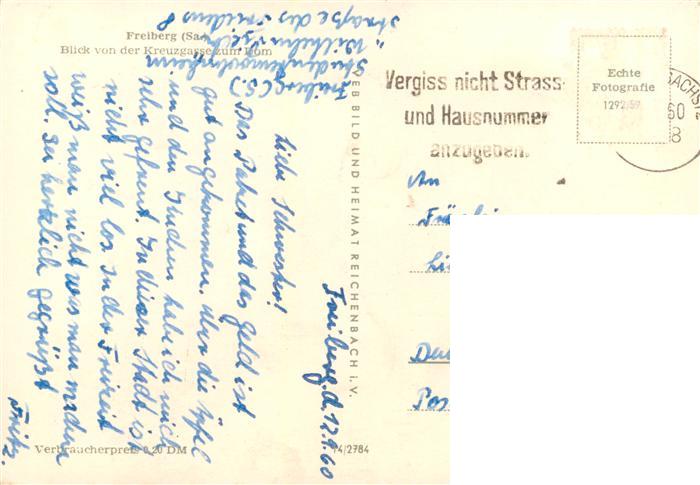 Freiberg (Sa.)
Blick von der Kreuzgasse zum Dom
Freiberg (S.)
Studentenwohnheim
"Wilhelm Pieck"
Straße des Friedens 8
Freiberg, d. 12.9.60
Liebe Schwester!
Das Paket und das Geld ist
gut angekommen. Über die Äpfel
und den Kuchen hab ich mich
sehr gefreut. In dieser Stadt ist
nicht viel los. In der Freizeit
weiß man nicht was man machen
soll. Sei herzlich gegrüßt
Fritz.
VEB BILD UND HEIMAT REICHENBACH i. V.
Verbraucherpreis 0,20 DM
74/2784
Vergiss nicht Strass-
und Hausnummer
anzugeben.
Echte
Fotografie
1292/59
60
8
An
Fräulein